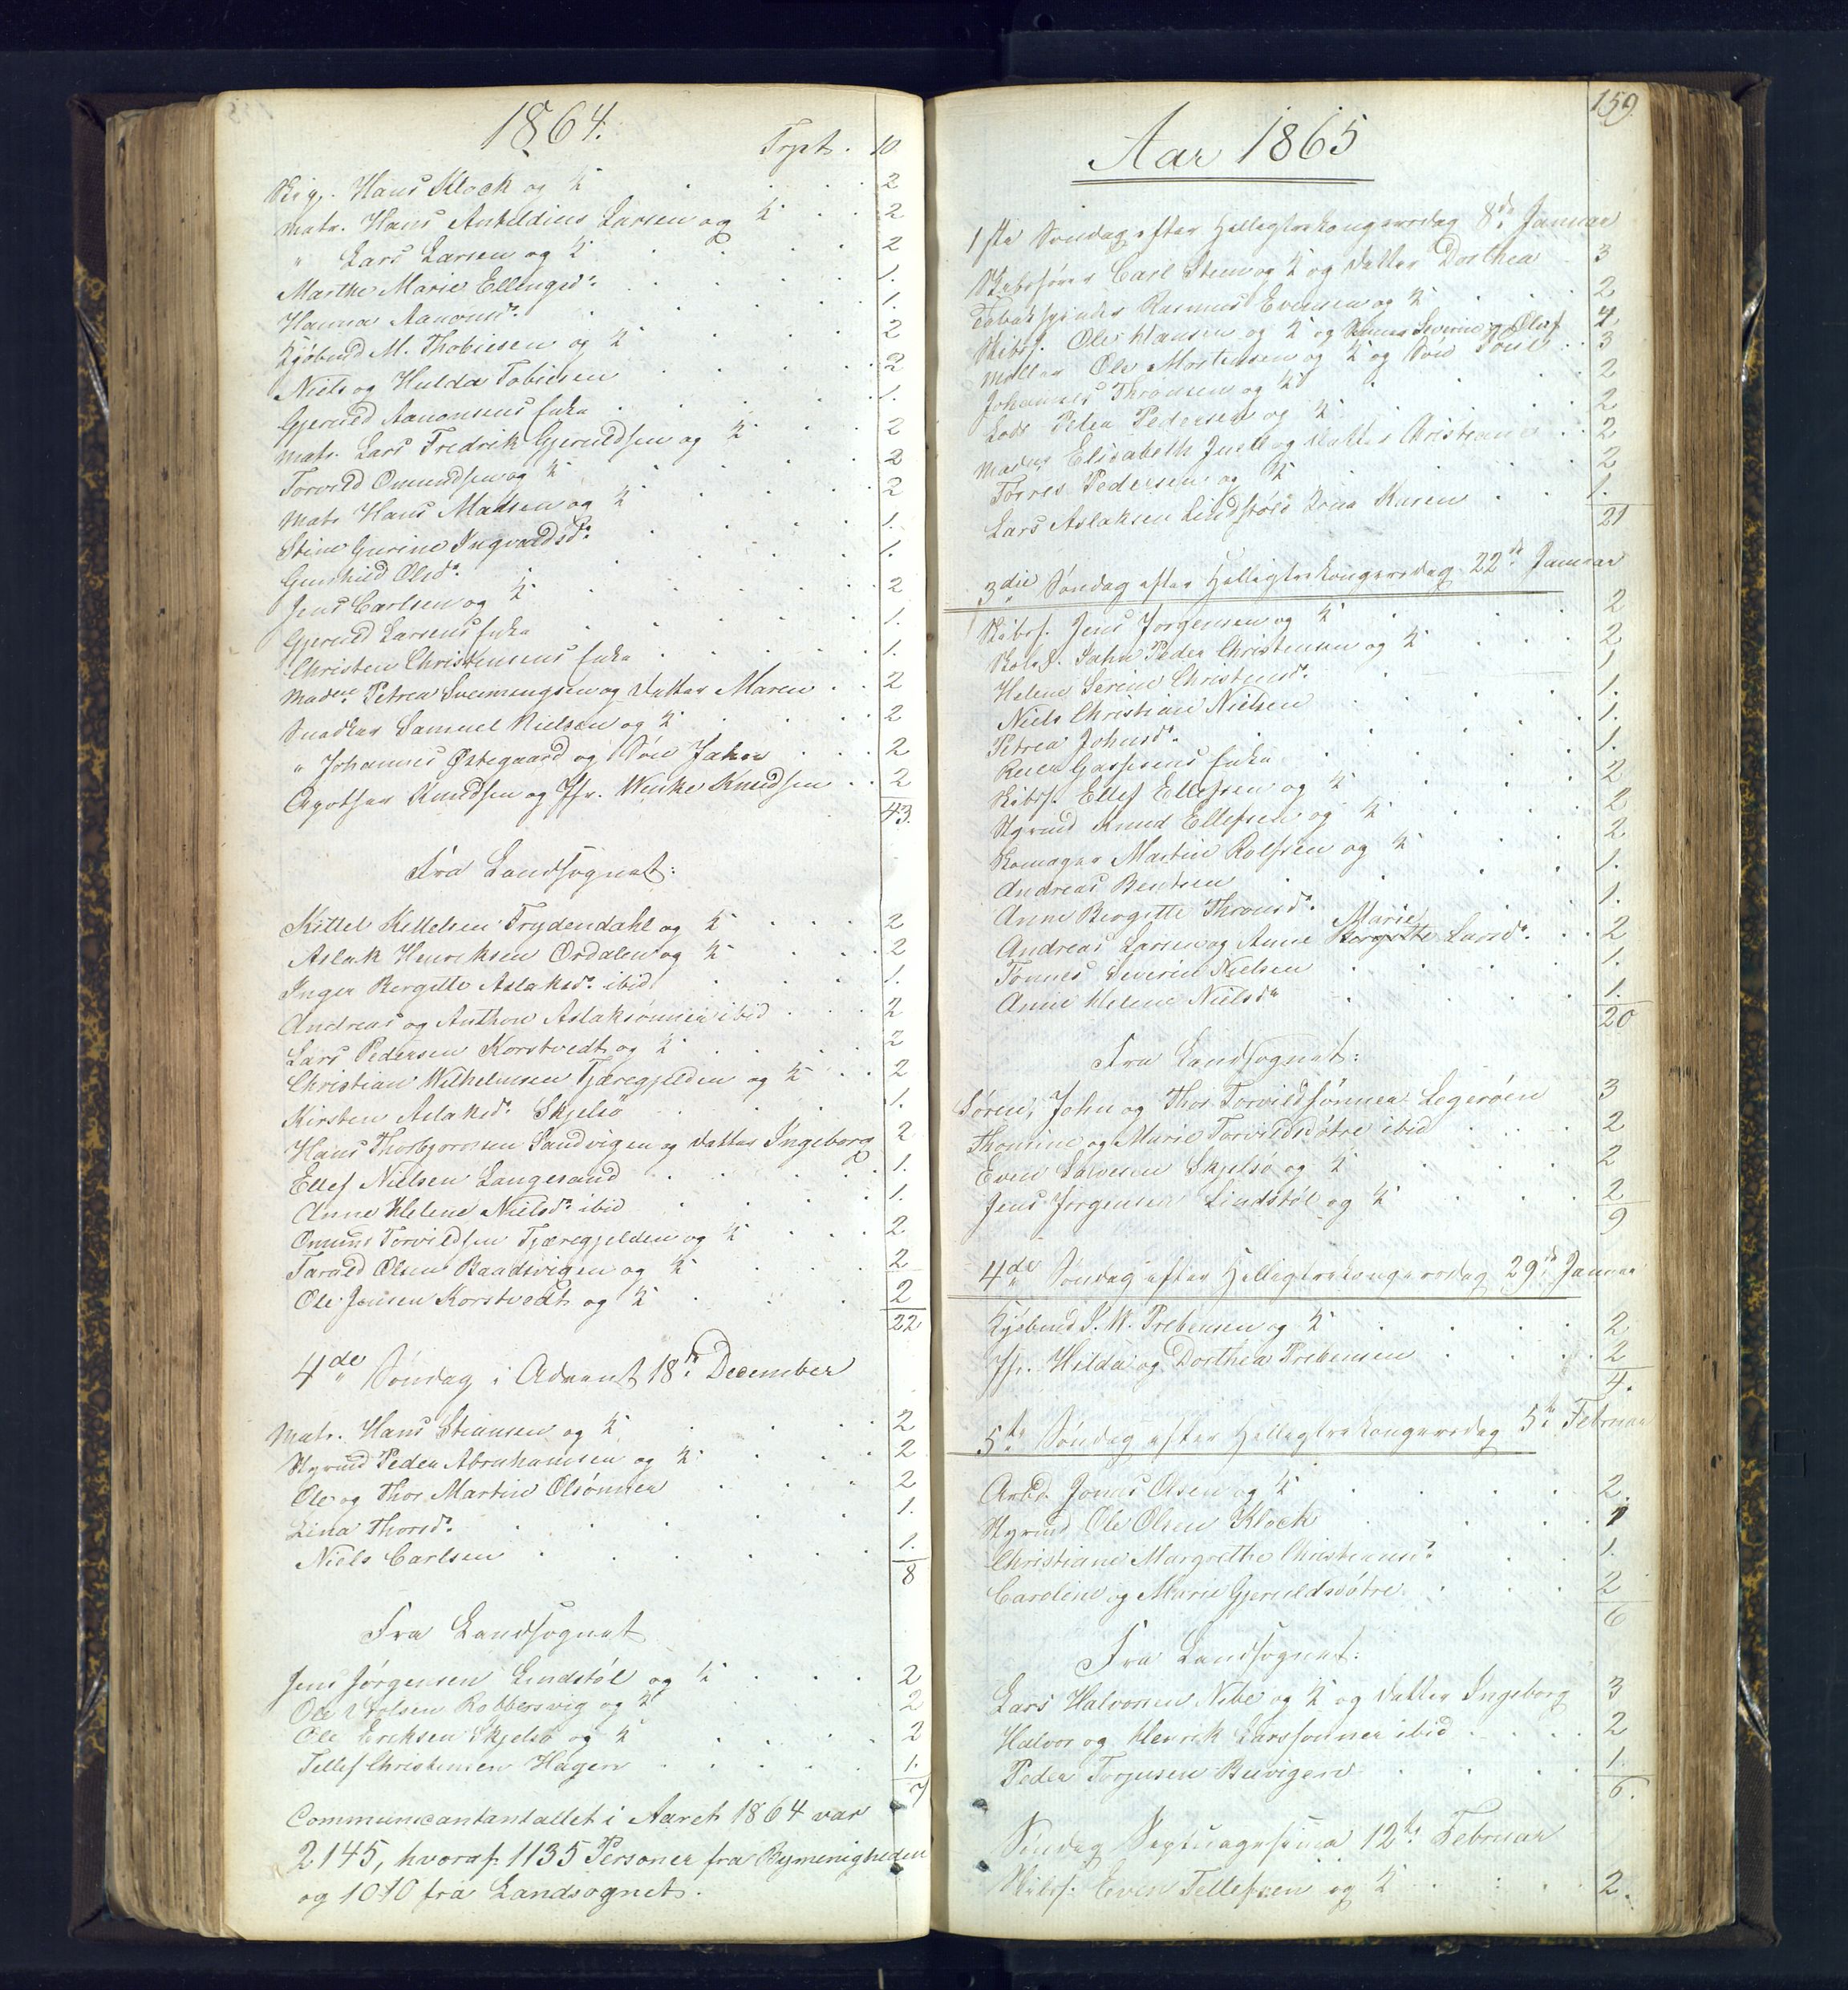 1864.
Trpt. 10
Hans Klock og K 2
Matr. Hans Ankildius Larsen og K 2
" Lars Larsen og K 2
Marthe Marie Ellingsd. 1.
Hanna Aanonsd. 1.
Kjøbmd M. Thobiesen og K 2
Niels og Hulda Tobiesen 2
Gjeruld Aanonsens Enke 1.
Matr. Lars Fredrik Gjeruldsen og K 2
Torvild Omundsen og K 2
Matr Hans Madsen og K 2
Stine Gurine Ingvaldsd. 1.
Gunhild Olsd. 1.
Jens Carlsen og K 2
Gjeruld Larsens Enke 1.
Christen Christensens Enke 1.
Madme. Petrea Svenningsen og Datter Maren 2
Snedker Samuel Nielsen og K 2
" Johannes Østegaard og Søn Jakon 2
Knudsen og Jfr. Wenke Knudsen 2
43.
Fra Landsognet:
Kittel Kittelsen Trydendahl og K 2
Aslak Henriksen Ordalen og K 2
Inger Bergitte Aslaksd. ibid 1.
Andreas og Anthon Aslaksønner ibid 2
Lars Pedersen Korstvedt og K 2
Christian Wilhelmsen Tjæregjelden og K 2
Kirsten Aslaksd. Skjelsø 1.
Hans Thorbjornsen Sandvigen og Datter Ingeborg 2
Ellef Nielsen Langesand 1.
Anne Helene Nielsd. ibid 1.
Omund Torvildsen Tjæregjelden og K 2
Tarald Olsen Baadsvigen og K 2
Ole Jensen Korstvedt og K 2
22
4de Søndag i Advent 18de December
Matr. Hans Stiansen og K 2
Styrmd Peder Abrahamsen og K 2
Ole og Thor Martin Olsønner 2
Lina Thorsd. 1.
Niels Carlsen 1.
8
Fra Landsognet
Jens Jørgensen Lindstøl og K 2
Ole Robbersvig og K 2
Ole Eriksen Skjelsø og K 2
Tellef Christensen Hagen 1.
7
Communicantantallet i Aaret 1864 var
2145, hvoraf 1135 Personer fra Bymenigheden
og 1010 fra Landsognet.
159
Aar 1865
1ste Søndag efter Helligtrekongersdag 8de Januar
Skibsfører Carl Steen og K og Datter Dorthea 3
Tobakspinder Rasmus Evensen og K 2
Skibsf. Ole Hansen og K og Sønner Severin og Oluf 4
Møller Ole Mortensen og K og Søn 3
Johannes Thronsen og K 2
Lods Peder Pedersen og K 2
Madme Elisabeth Juell og Datter Christiane 2
Torres Pedersen og K 2
Lars Aslaksen Lindstøls Kone Karen 1.
21
3die Søndag efter Helligtrekongersdag 22de Januar
Skibsf. Jens Jørgensen og K 2
Peder Christensen og K 2
Helene Serine Christensd. 1
Niels Christian Nielsen 1.
Petrea Johnsd. 1.
Gassesens Enke 1.
Skibsf. Ellef Ellefsen og K 2
Styrmd Knud Ellefsen og K 2
Skomager Martin Rolfsen og K 2
Andreas Bentsen 1.
Anne Bergitte Thronsd. 1.
Marie
Andreas Larsen og Anne Bergitte Larsd. 2
Tønnes Severin Nielsen 1.
Anne Helene Nielsd. 1.
20
Fra Landsognet:
Søren, John og Thor Torvildsønner Legerøen 3
Thomine og Marie Torvildsdøtre ibid 2
Even Salvesen Skjelsø og K 2
Jens Jørgensen Lindstøl og K 2
9
4de Søndag efter Helligtrekongersdag 29de Januar
Kjøbmd P. W. Prebensen og K 2
Jfr. Hilda og Dorthea Prebensen 2
4.
5te Søndag efter Helligtrekongersdag 5te Februar
Arbd. Jonas Olsen og K 2.
Styrmd Ole Olsen Klock 1
Christiane Margrethe Christensd. 1.
Caroline og Marie Gjeruldsdøtre 2
6
Fra Landsognet:
Lars Halvorsen Nibe og K og Datter Ingeborg 3
Halvor og Henrik Larssønner ibid 2
Peder Torjusen Buvigen 1.
6.
Søndag Septuagesima 12te Februar
Skibsf. Even Tellefsen og K 2.